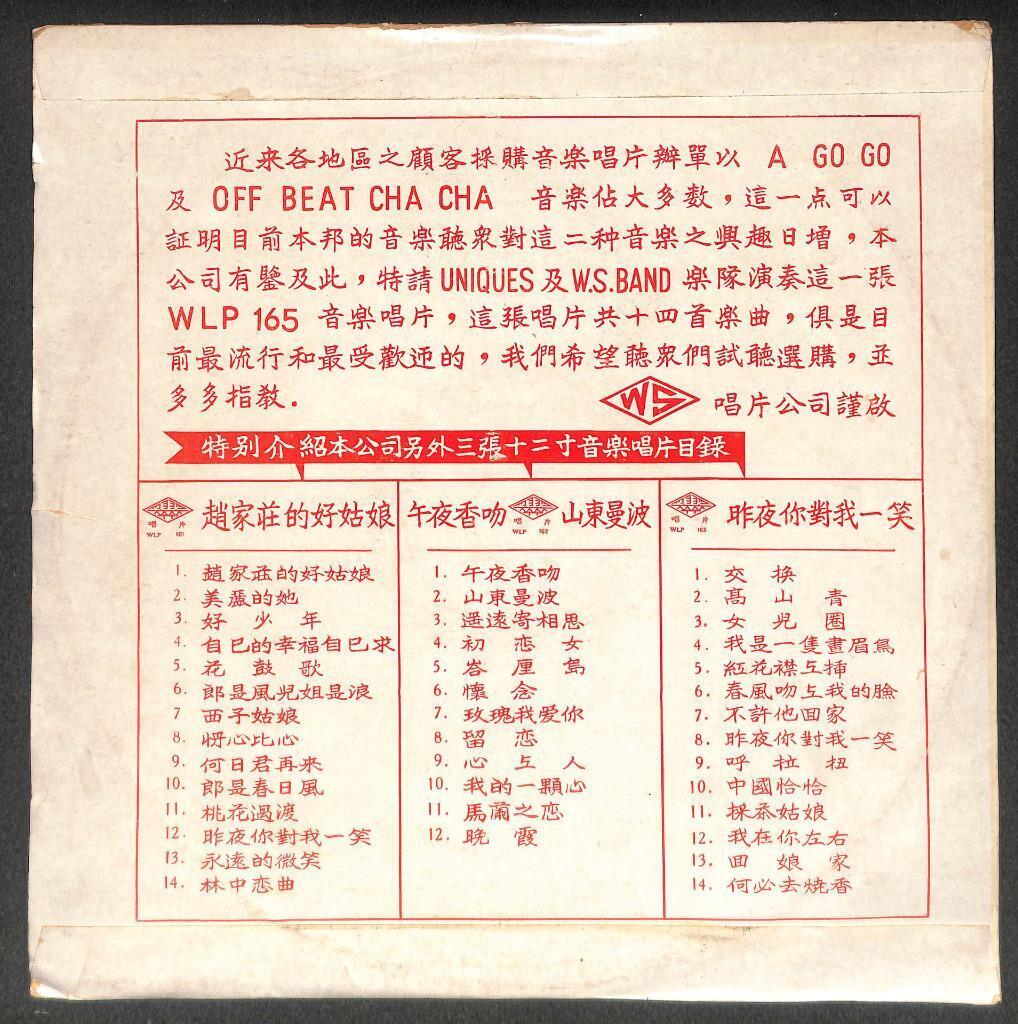 近来各地區之顧客採購音楽唱片辦單以 A GO GO
及 OFF BEAT CHA CHA 音楽佔大多数，這一点可以
証明目前本邦的音楽聽眾對這二种音楽之興趣日增，本
公司有鑒及此，特請 UNIQUES 及 W.S.BAND 楽隊演奏這一張
WLP 165 音楽唱片，這張唱片共十四首楽曲，俱是目
前最流行和最受歡迊的，我們希望聽眾們試聽選購，並
多多指教．
WS 唱片公司謹啟
特别介紹本公司另外三張十二寸音楽唱片目錄
唱片 WLP 161 趙家莊的好姑娘
1. 趙家莊的好姑娘
2. 美麗的她
3. 好少年
4. 自己的幸福自己求
5. 花鼓歌
6. 郎是風兒姐是浪
7 西子姑娘
8. 將心比心
9. 何日君再来
10. 郎是春日風
11. 桃花過渡
12. 昨夜你對我一笑
13. 永遠的微笑
14. 林中恋曲
午夜香吻 唱片 WLP 162 山東曼波
1. 午夜香吻
2. 山東曼波
3. 遥遠寄相思
4. 初恋女
5. 峇厘島
6. 懷念
7. 玫瑰我爱你
8. 留恋
9. 心上人
10. 我的一顆心
11. 馬蘭之恋
12. 晚霞
唱片 WLP 163 昨夜你對我一笑
1. 交换
2. 高山青
3. 女兒圈
4. 我是一隻畫眉鳥
5. 紅花襟上挿
6. 春風吻上我的臉
7. 不許他囬家
8. 昨夜你對我一笑
9. 呼拉扭
10. 中國恰恰
11. 採茶姑娘
12. 我在你左右
13. 囬娘家
14. 何必去燒香